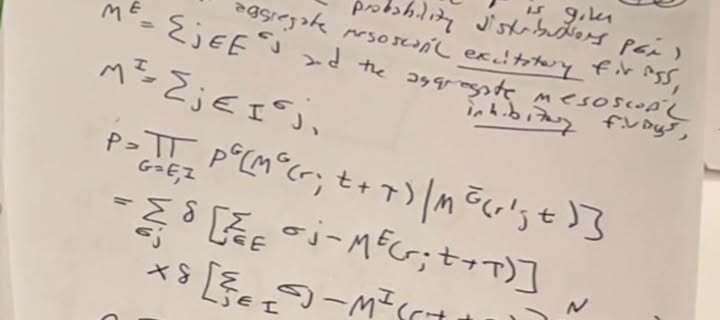 is given
probability distributions p(σi)
aggregate mesoscopic excitatory firings,
M^E = Σ_{j∈E} σj and the aggregate mesoscopic
M^I = Σ_{j∈I} σj, inhibitory firings,
P = Π_{G=E,I} P^G[M^G(r; t+τ) | M^Ḡ(r'; t)]
= Σ_{σj} δ [Σ_{j∈E} σj − M^E(r; t+τ)]
× δ [Σ_{j∈I} σj − M^I(r; t+ N